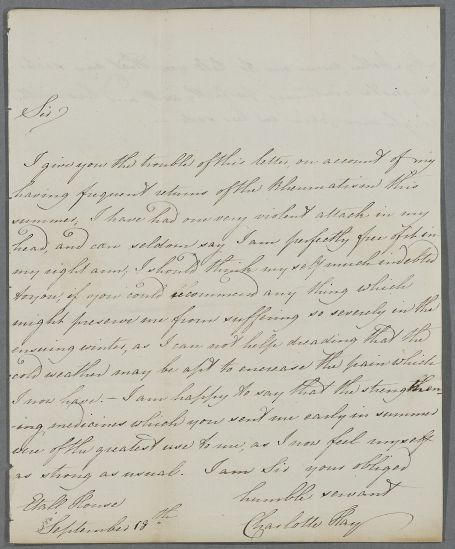 Sir
I give you the trouble of this letter, on account of my
having frequent returns of the Rheumatism this
summer, I have had one very violent attack in my
head, and can seldom say I am perfectly free of it in
my right arm, I should think myself much indebted
to you, if you could recommend any thing which
might preserve me from suffering so severely in the
ensuing winter, as I can not help dreading that the
cold weather may be apt to encrease the pain which
I now have. – I am happy to say that the strengthen-
-ing medicines which you sent me early in summer
were of the greatest use to me, as I now feel myself
as strong as usual. I am Sir your obliged
humble servant
Etall House
September 18th
Charlotte Hay